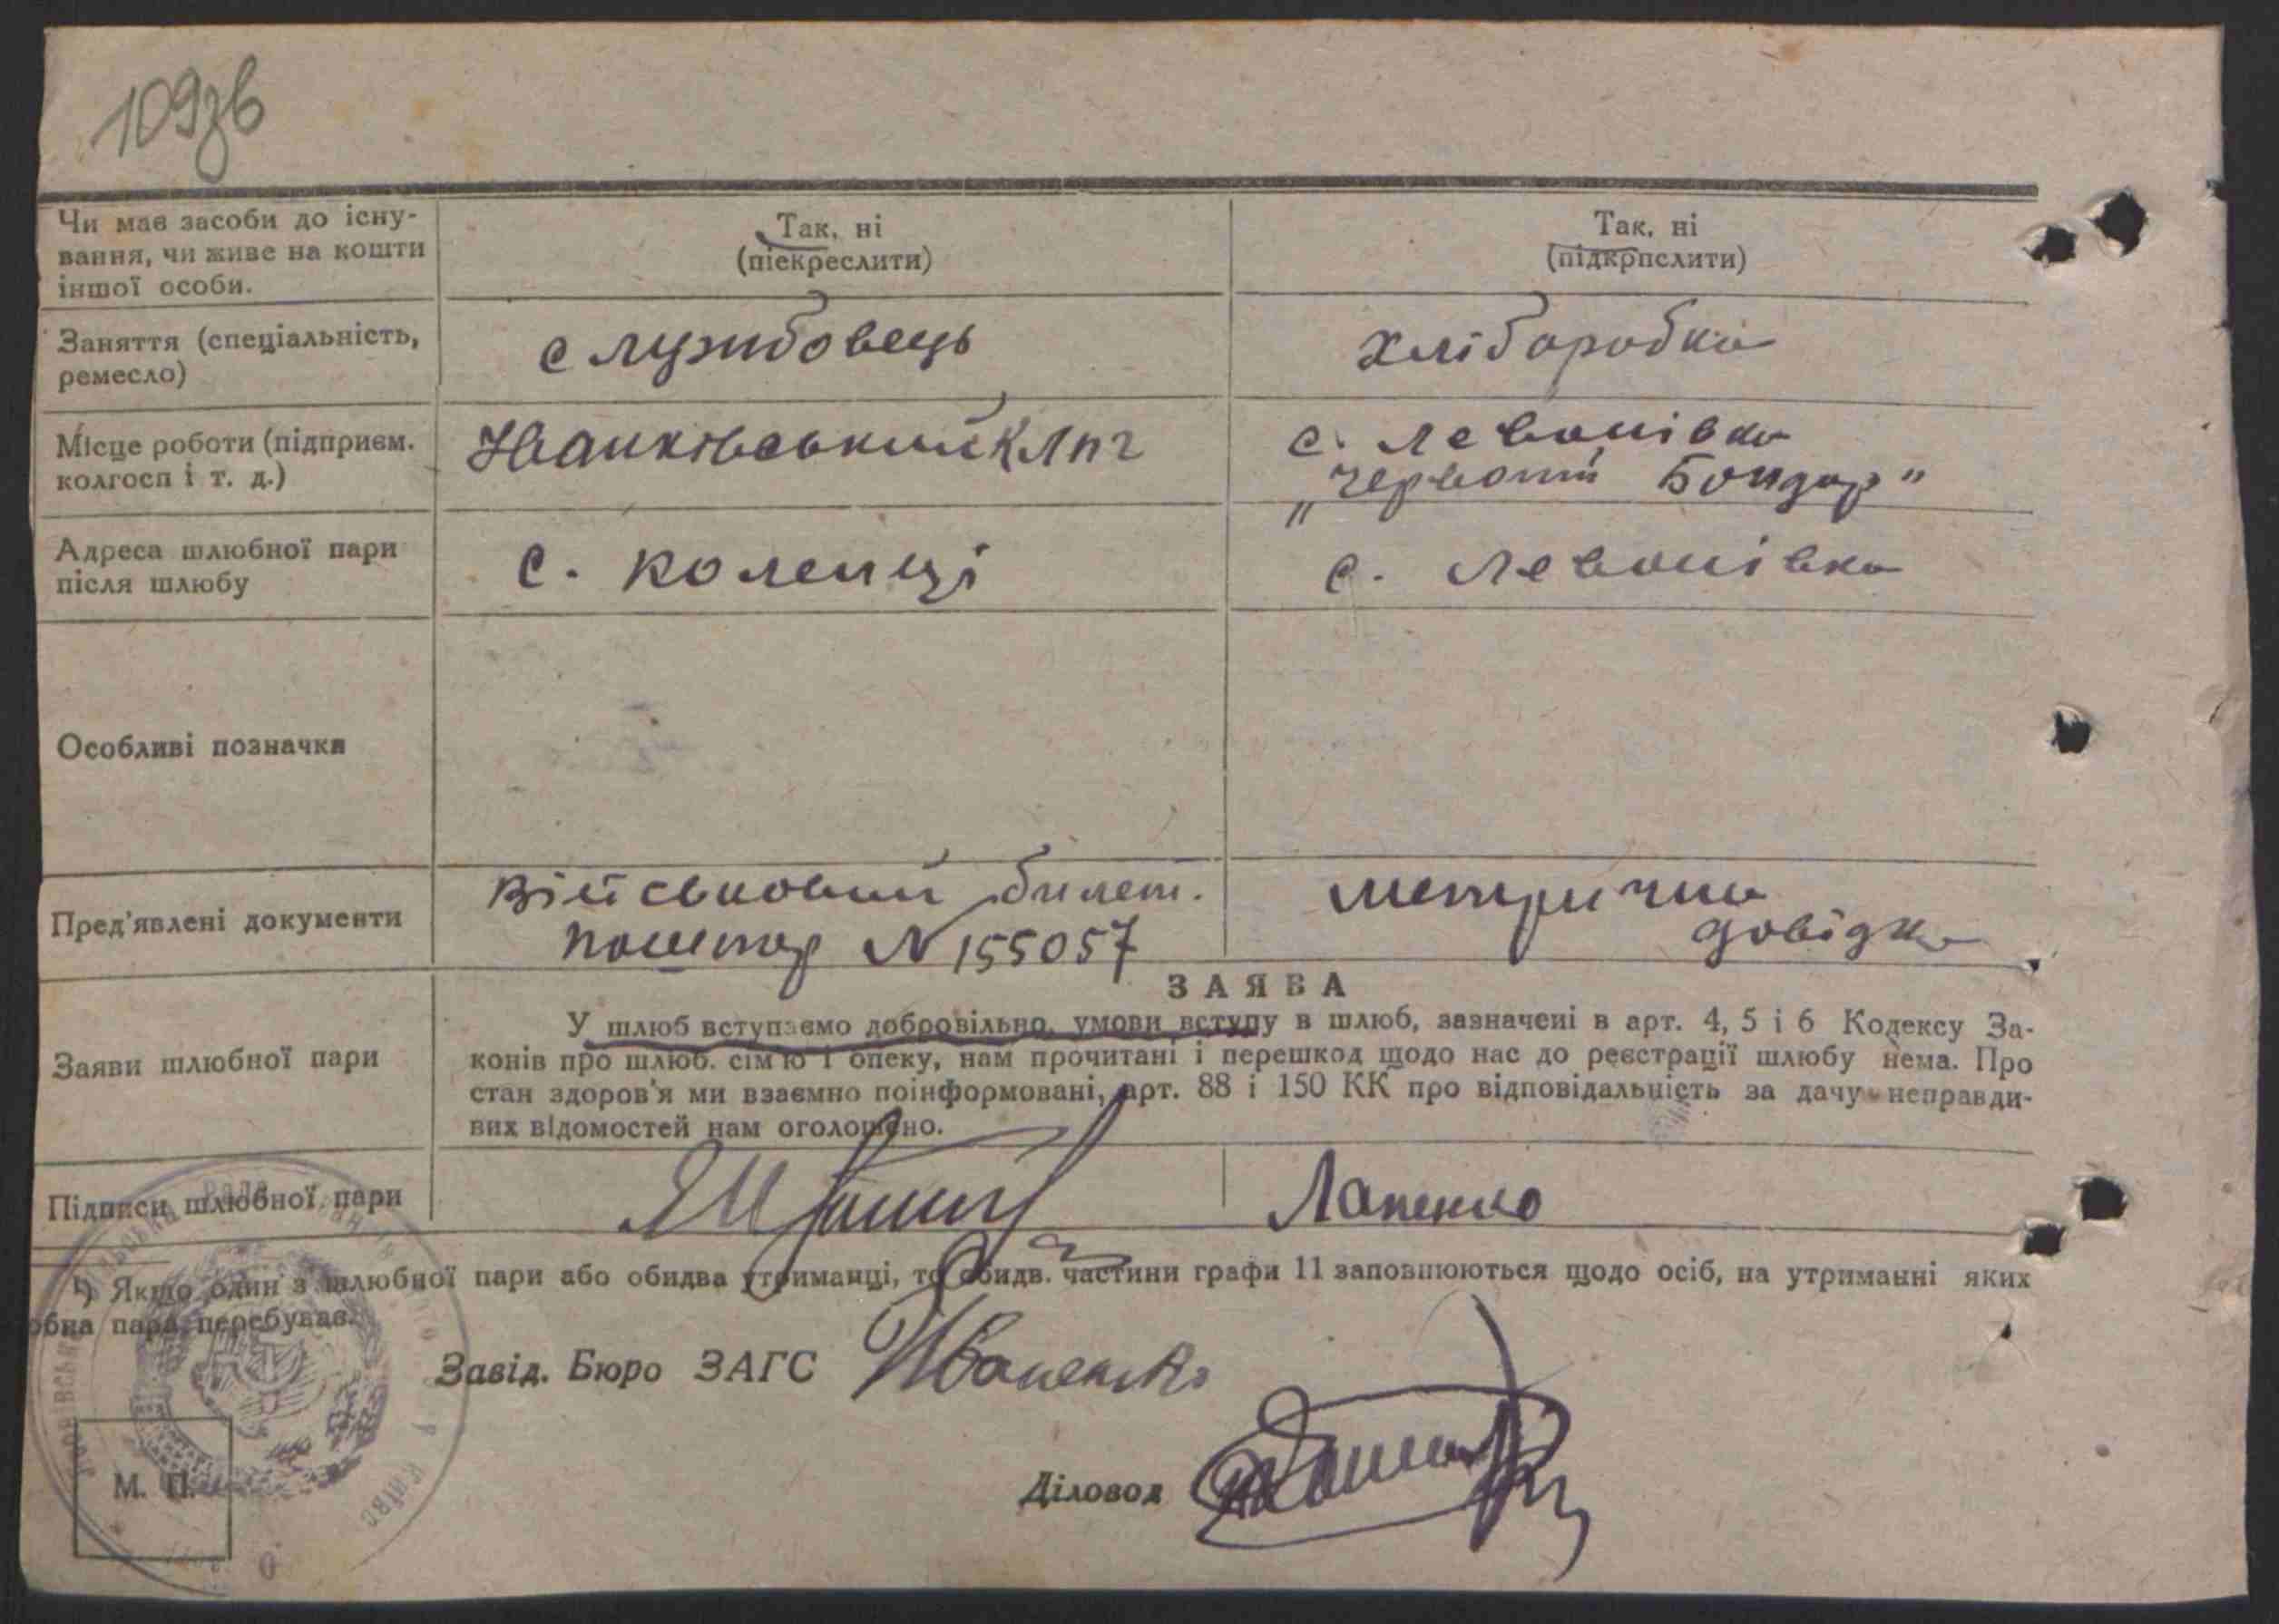 109зв
Чи має засоби до існу-
вання, чи живе на кошти
іншої особи.
Так, ні
(піекреслити)
Так, ні
(підкрпслити)
Заняття (спеціальність,
ремесло)
службовець
хліборобка
Місце роботи (підприєм.
колгосп і т. д.)
Іванківський КЛПГ
с. Левонівка
"Червоний Бондар"
Адреса шлюбної пари
після шлюбу
с. Коленці
с. Левонівка
Особливі позначки
Пред'явлені документи
Військовий билет.
пошпор N 155057
метрична
довідка
ЗАЯВА
Заяви шлюбної пари
У шлюб вступаємо добровільно, умови вступу в шлюб, зазначені в арт. 4, 5 і 6 Кодексу За-
конів про шлюб. сім'ю і опеку, нам прочитані і перешкод щодо нас до реєстрації шлюбу нема. Про
стан здоров'я ми взаємно поінформовані, арт. 88 і 150 КК про відповідальність за дачу неправди-
вих відомостей нам оголошено.
Підписи шлюбної пари
Лапенко
¹) Якщо один з шлюбної пари або обидва утриманці, то обидв. частини графи 11 заповнюються щодо осіб, на утриманні яких
обна пара перебуває.
Завід. Бюро ЗАГС Іваненко
Діловод
М. П.